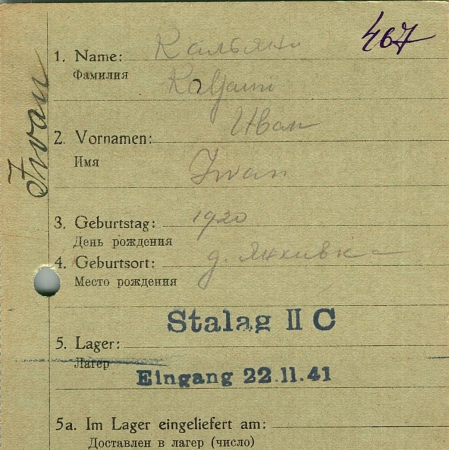 467
Iwan
1. Name: Кальяни
Фамилия
Kaljani
Иван
2. Vornamen:
Имя
Iwan
3. Geburtstag: 1920
День рождения
4. Geburtsort: д.
Место рождения
Stalag II C
5. Lager:
Лагер
Eingang 22.11.41
5a. Im Lager eingeliefert am:
Доставлен в лагер (число)